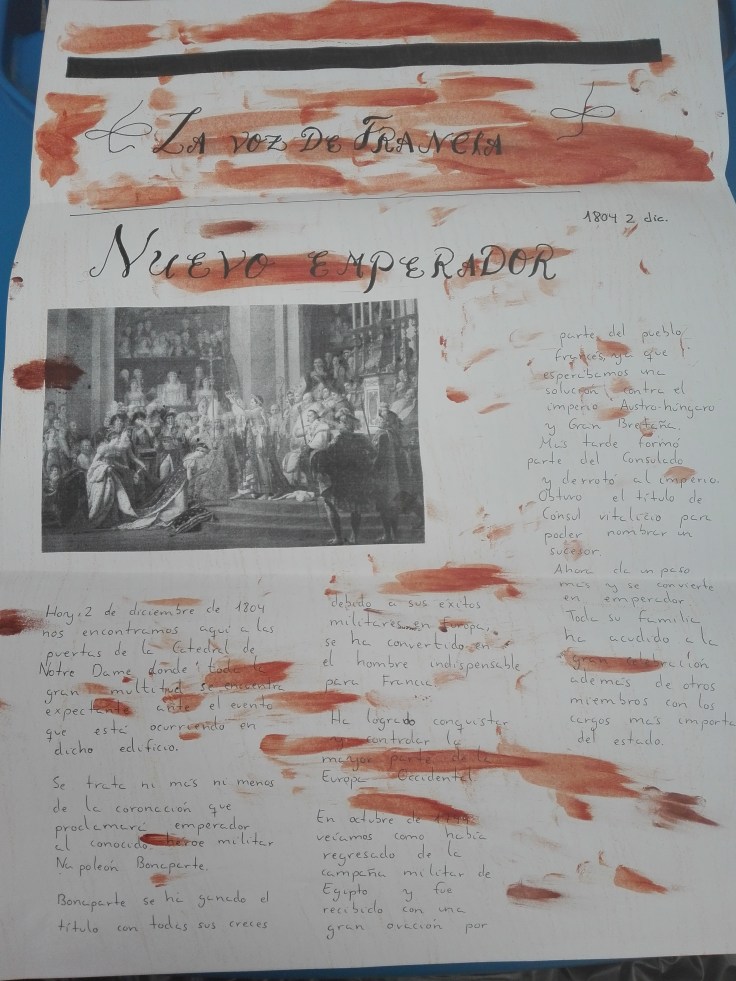 LA VOZ DE FRANCIA
1804 2 dic.
NUEVO EMPERADOR
Hoy, 2 de diciembre de 1804
nos encontramos aquí a las
puertas de la Catedral de
Notre Dame donde toda la
gran multitud se encuentra
expectante ante el evento
que está ocurriendo en
dicho edificio.
Se trata ni más ni menos
de la coronación que
proclamará emperador
al conocido héroe militar
Napoleón Bonaparte.
Bonaparte se ha ganado el
título con todas sus creces
debido a sus éxitos
militares en Europa,
se ha convertido en
el hombre indispensable
para Francia
Ha logrado conquistar
y controlar la
mayor parte de la
Europa Occidental
En octubre de 1799
veíamos como había
regresado de la
campaña militar de
Egipto y fue
recibido con una
gran ovación por
parte del pueblo
francés, ya que
esperábamos una
solución contra el
imperio Austro-húngaro
y Gran Bretaña.
Más tarde formó
parte del Consulado
y derrotó al imperio.
Obtuvo el título de
Cónsul vitalicio para
poder nombrar un
sucesor.
Ahora da un paso
más y se convierte
en emperador
Toda su familia
ha acudido a la
gran celebración
además de otros
miembros con los
cargos más importa
del estado.